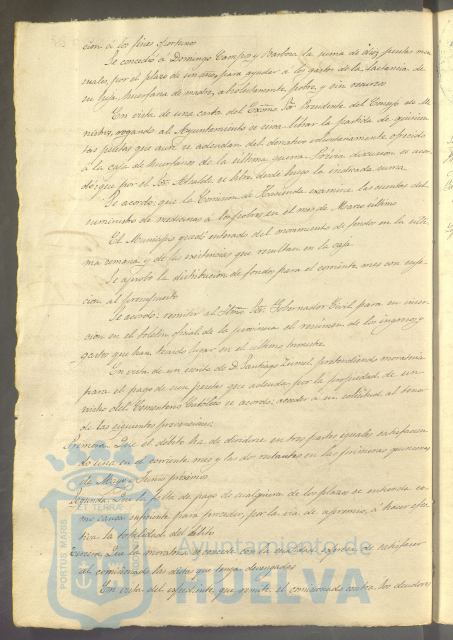 cion á los fines oportunos
Se concedió á Domingo Campos y Barbosa la suma de diez pesetas men
suales, por el plazo de un año, para ayudar á los gastos de la lactancia de
su hija, huerfana de madre, absolutamente pobre, y sin recursos
En vista de una carta del Exmo. Sor. Presidente del Consejo de Mi
nistros, rogando al Ayuntamiento se sirva librar la partida de quinien
tas pesetas que aun se adeudan del donativo voluntariamente ofrecido
á la caja de huerfanos de la ultima guerra. Previa discusion se acor
dó que por el Sor. Alcalde se libre desde luego la indicada suma
Se acordó: que la Comision de Hacienda examine las cuentas del
suministro de medicinas á los pobres, en el mes de Marzo ultimo
El Municipio quedó enterado del movimiento de fondos en la ulti
ma semana y de las existencias que resultan en la caja
Se aprobó la distribucion de fondos para el corriente mes con suje
cion al presupuesto
Se acordó: remitir al Iltmo. Sor. Gobernador Civil para su inser
cion en el boletin oficial de la provincia el resumen de los ingresos y
gastos que han tenido lugar en el ultimo trimestre
En vista de un escrito de D. Santiago pretendiendo moratoria
para el pago de cien pesetas que adeuda por la propiedad de un
nicho del Cementerio Católico se acordó, acceder á su solicitud al tenor
de las siguientes prevenciones:
Primera. Que el débito ha de dividirse en tres partes iguales satisfacien
do una en el corriente mes y las dos restantes en las primeras quincenas
de Mayo y Junio próximo
Segunda. Que la falta de pago de cualquiera de los plazos se entienda co
mo causa suficiente para proceder, por la via de apremio, á hacer efec
tiva la totalidad del débito
Tercera. Que la moratoria se concede con la cualidad expresa de satisfacer
al comisionado las dietas que tenga devengadas
En vista del expediente que remite el comisionado contra los deudores
PORTUS MARIS
ET TERRÆ
Ayuntamiento de
HUELVA